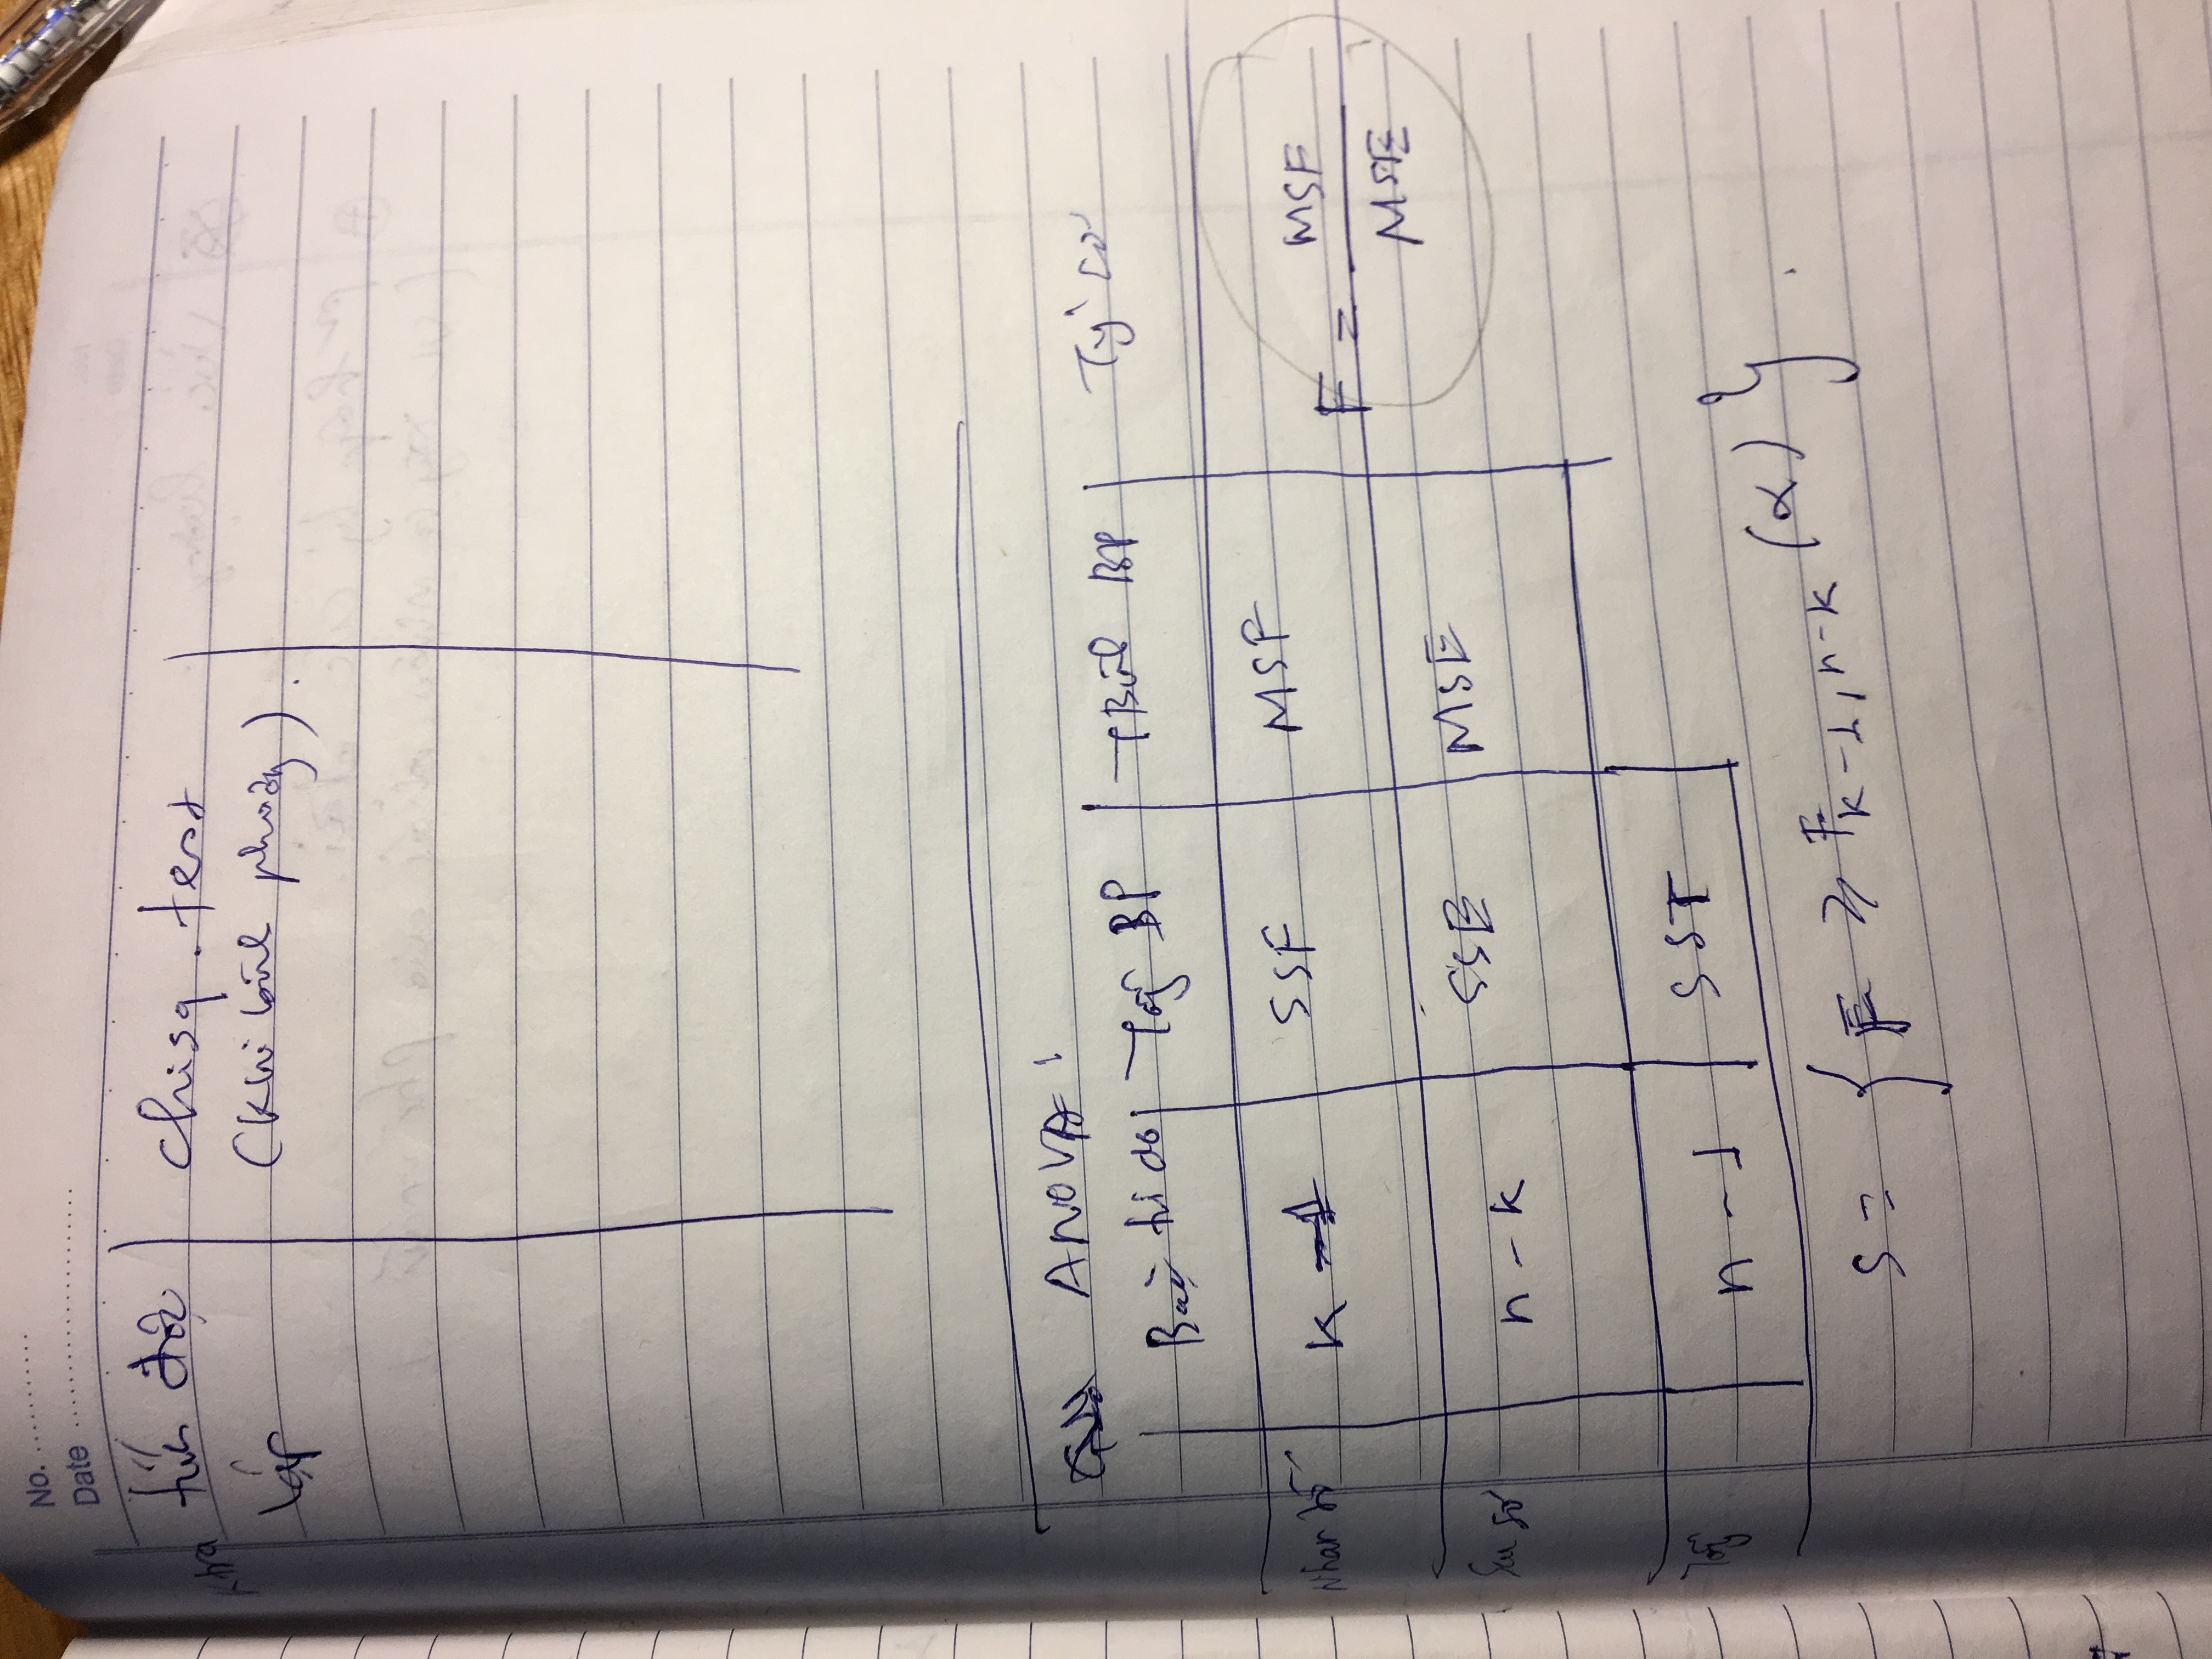 No.
Date
Ktra tính độc chisq.test
lập (Khi bình phương).
ANOVA:
Bậc tự do Tổng BP TBình BP Tỷ số
Nhân tố k-1 SSF MSF F = MSF / MSE
Sai số n-k SSE MSE
Tổng n-1 SST
S = { F ≥ F k-1, n-k (α) }.